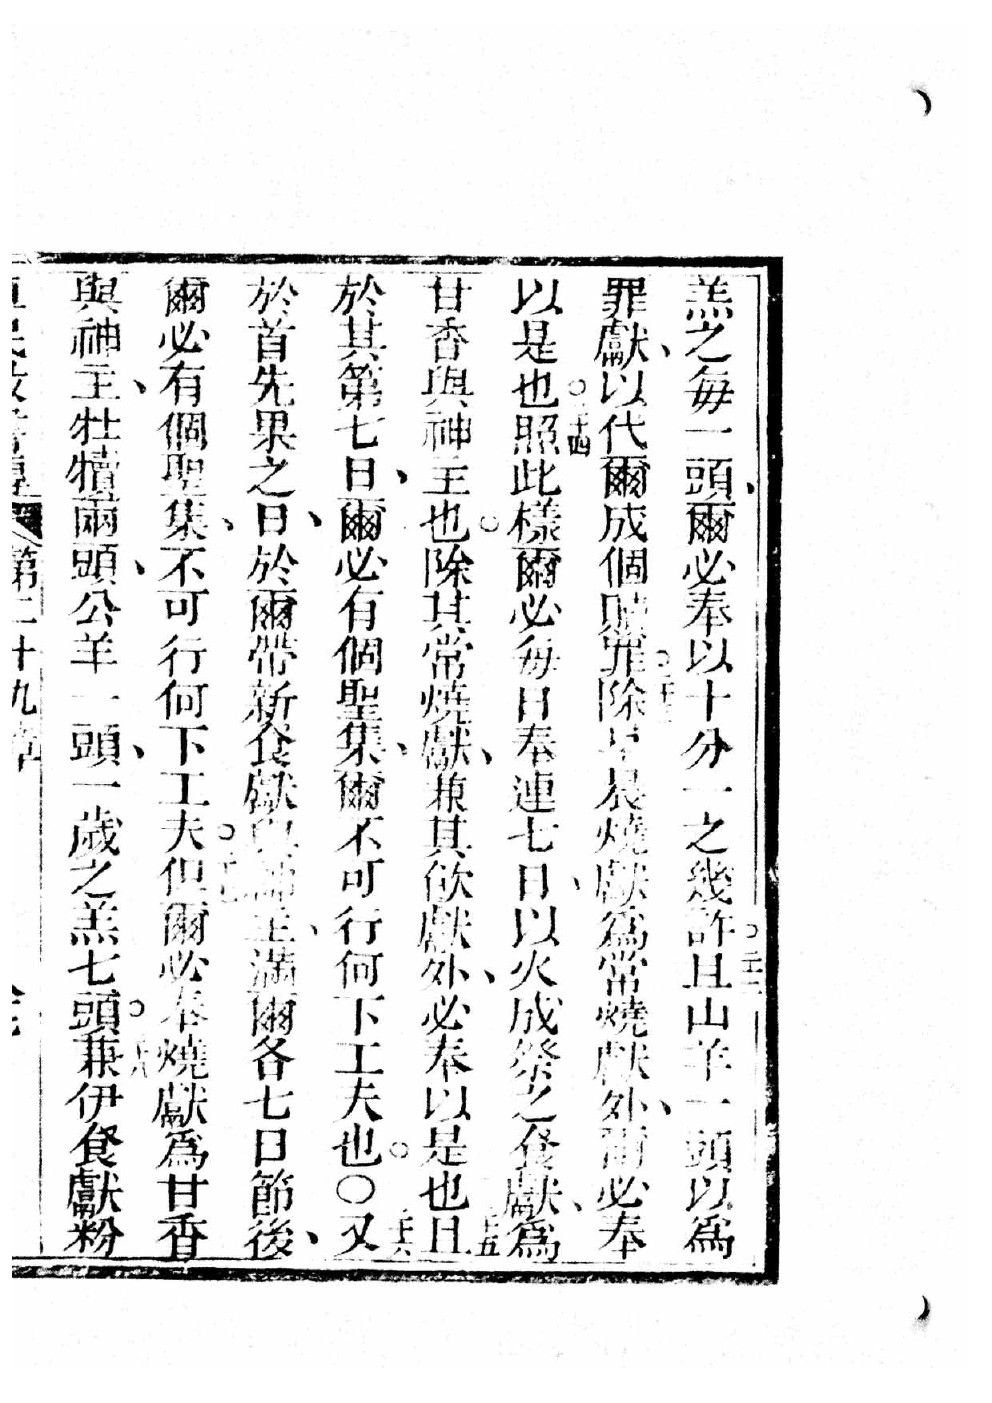 羔之每一頭、爾必奉以十分一之幾許○二十二且山羊一頭以爲
罪獻、以代爾成個贖罪○二十三除早晨燒獻爲常燒獻外、爾必奉
以是也○二十四照此樣爾必每日奉連七日、以火成祭之食獻、爲
甘香與神主也○二十五除其常燒獻、兼其飲獻外、必奉以是也且
於其第七日、爾必有個聖集、爾不可行何下工夫也○〇二十六又
於首先果之日、於爾帶新食獻與神主、滿爾各七日節後、
爾必有個聖集、不可行何下工夫○二十七但爾必奉燒獻爲甘香
與神主、牡犢兩頭、公羊一頭、一歲之羔七頭○二十八兼伊食獻粉
第二十九章